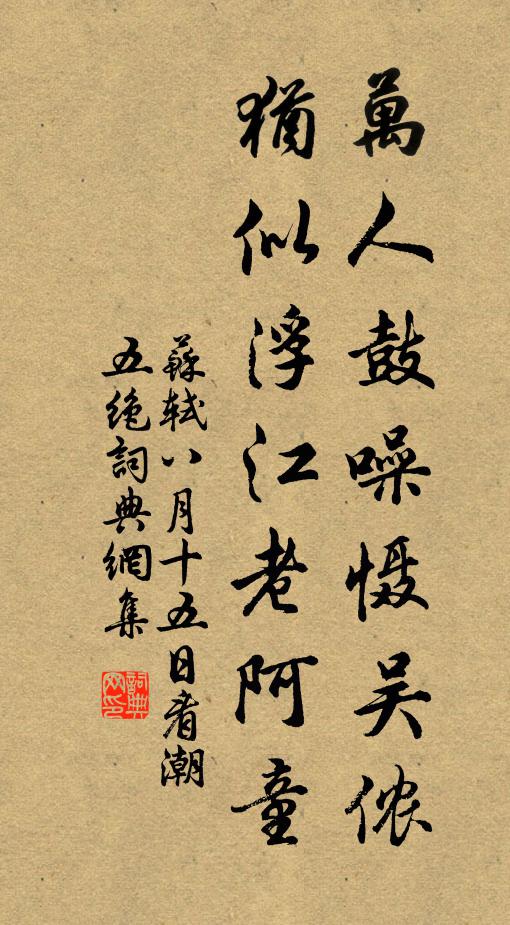 萬人鼓噪慑吴侬
猶似浮江老阿童
蘇軾八月十五日看潮
五絶詞典網集
詞典网印